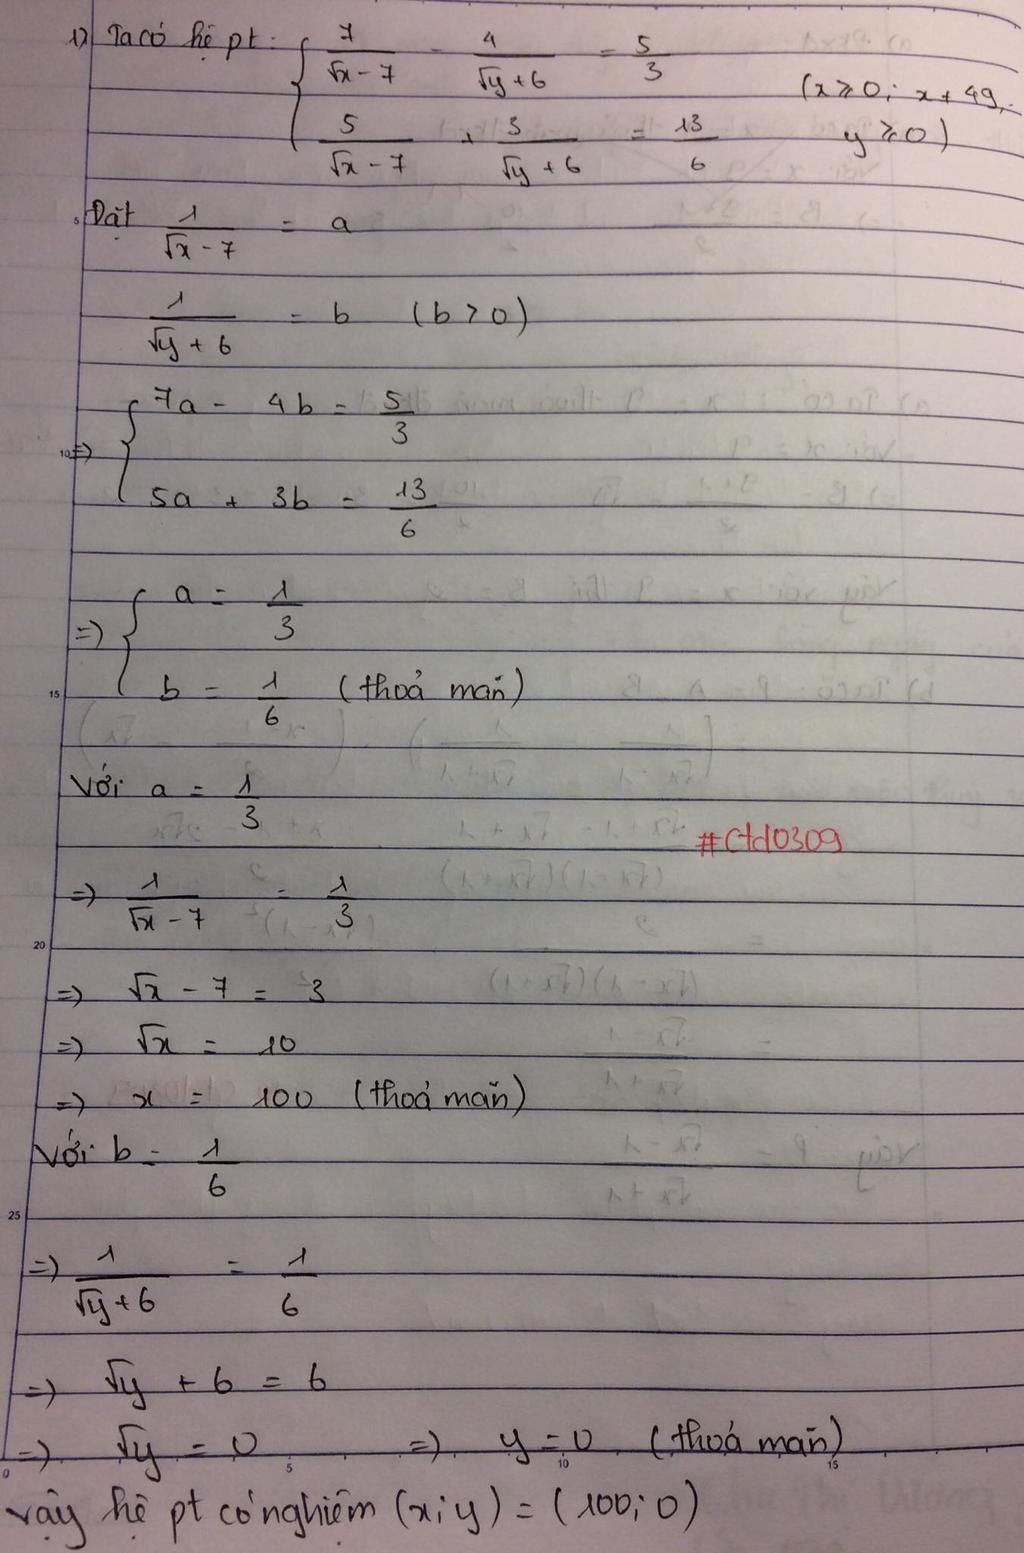 1) Ta có hệ pt: { 7/(√x - 7) - 4/(√y + 6) = 5/3
5/(√x - 7) + 3/(√y + 6) = 13/6 (x ⩾ 0; x ≠ 49; y ⩾ 0)
Đặt 1/(√x - 7) = a
1/(√y + 6) = b (b > 0)
=> { 7a - 4b = 5/3
5a + 3b = 13/6
=> { a = 1/3
b = 1/6 (thoả mãn)
Với a = 1/3
#Ctd0309
=> 1/(√x - 7) = 1/3
=> √x - 7 = 3
=> √x = 10
=> x = 100 (thoả mãn)
Với b = 1/6
=> 1/(√y + 6) = 1/6
=> √y + 6 = 6
=> √y = 0 => y = 0 (thoả mãn)
Vậy hệ pt có nghiệm (x; y) = (100; 0)